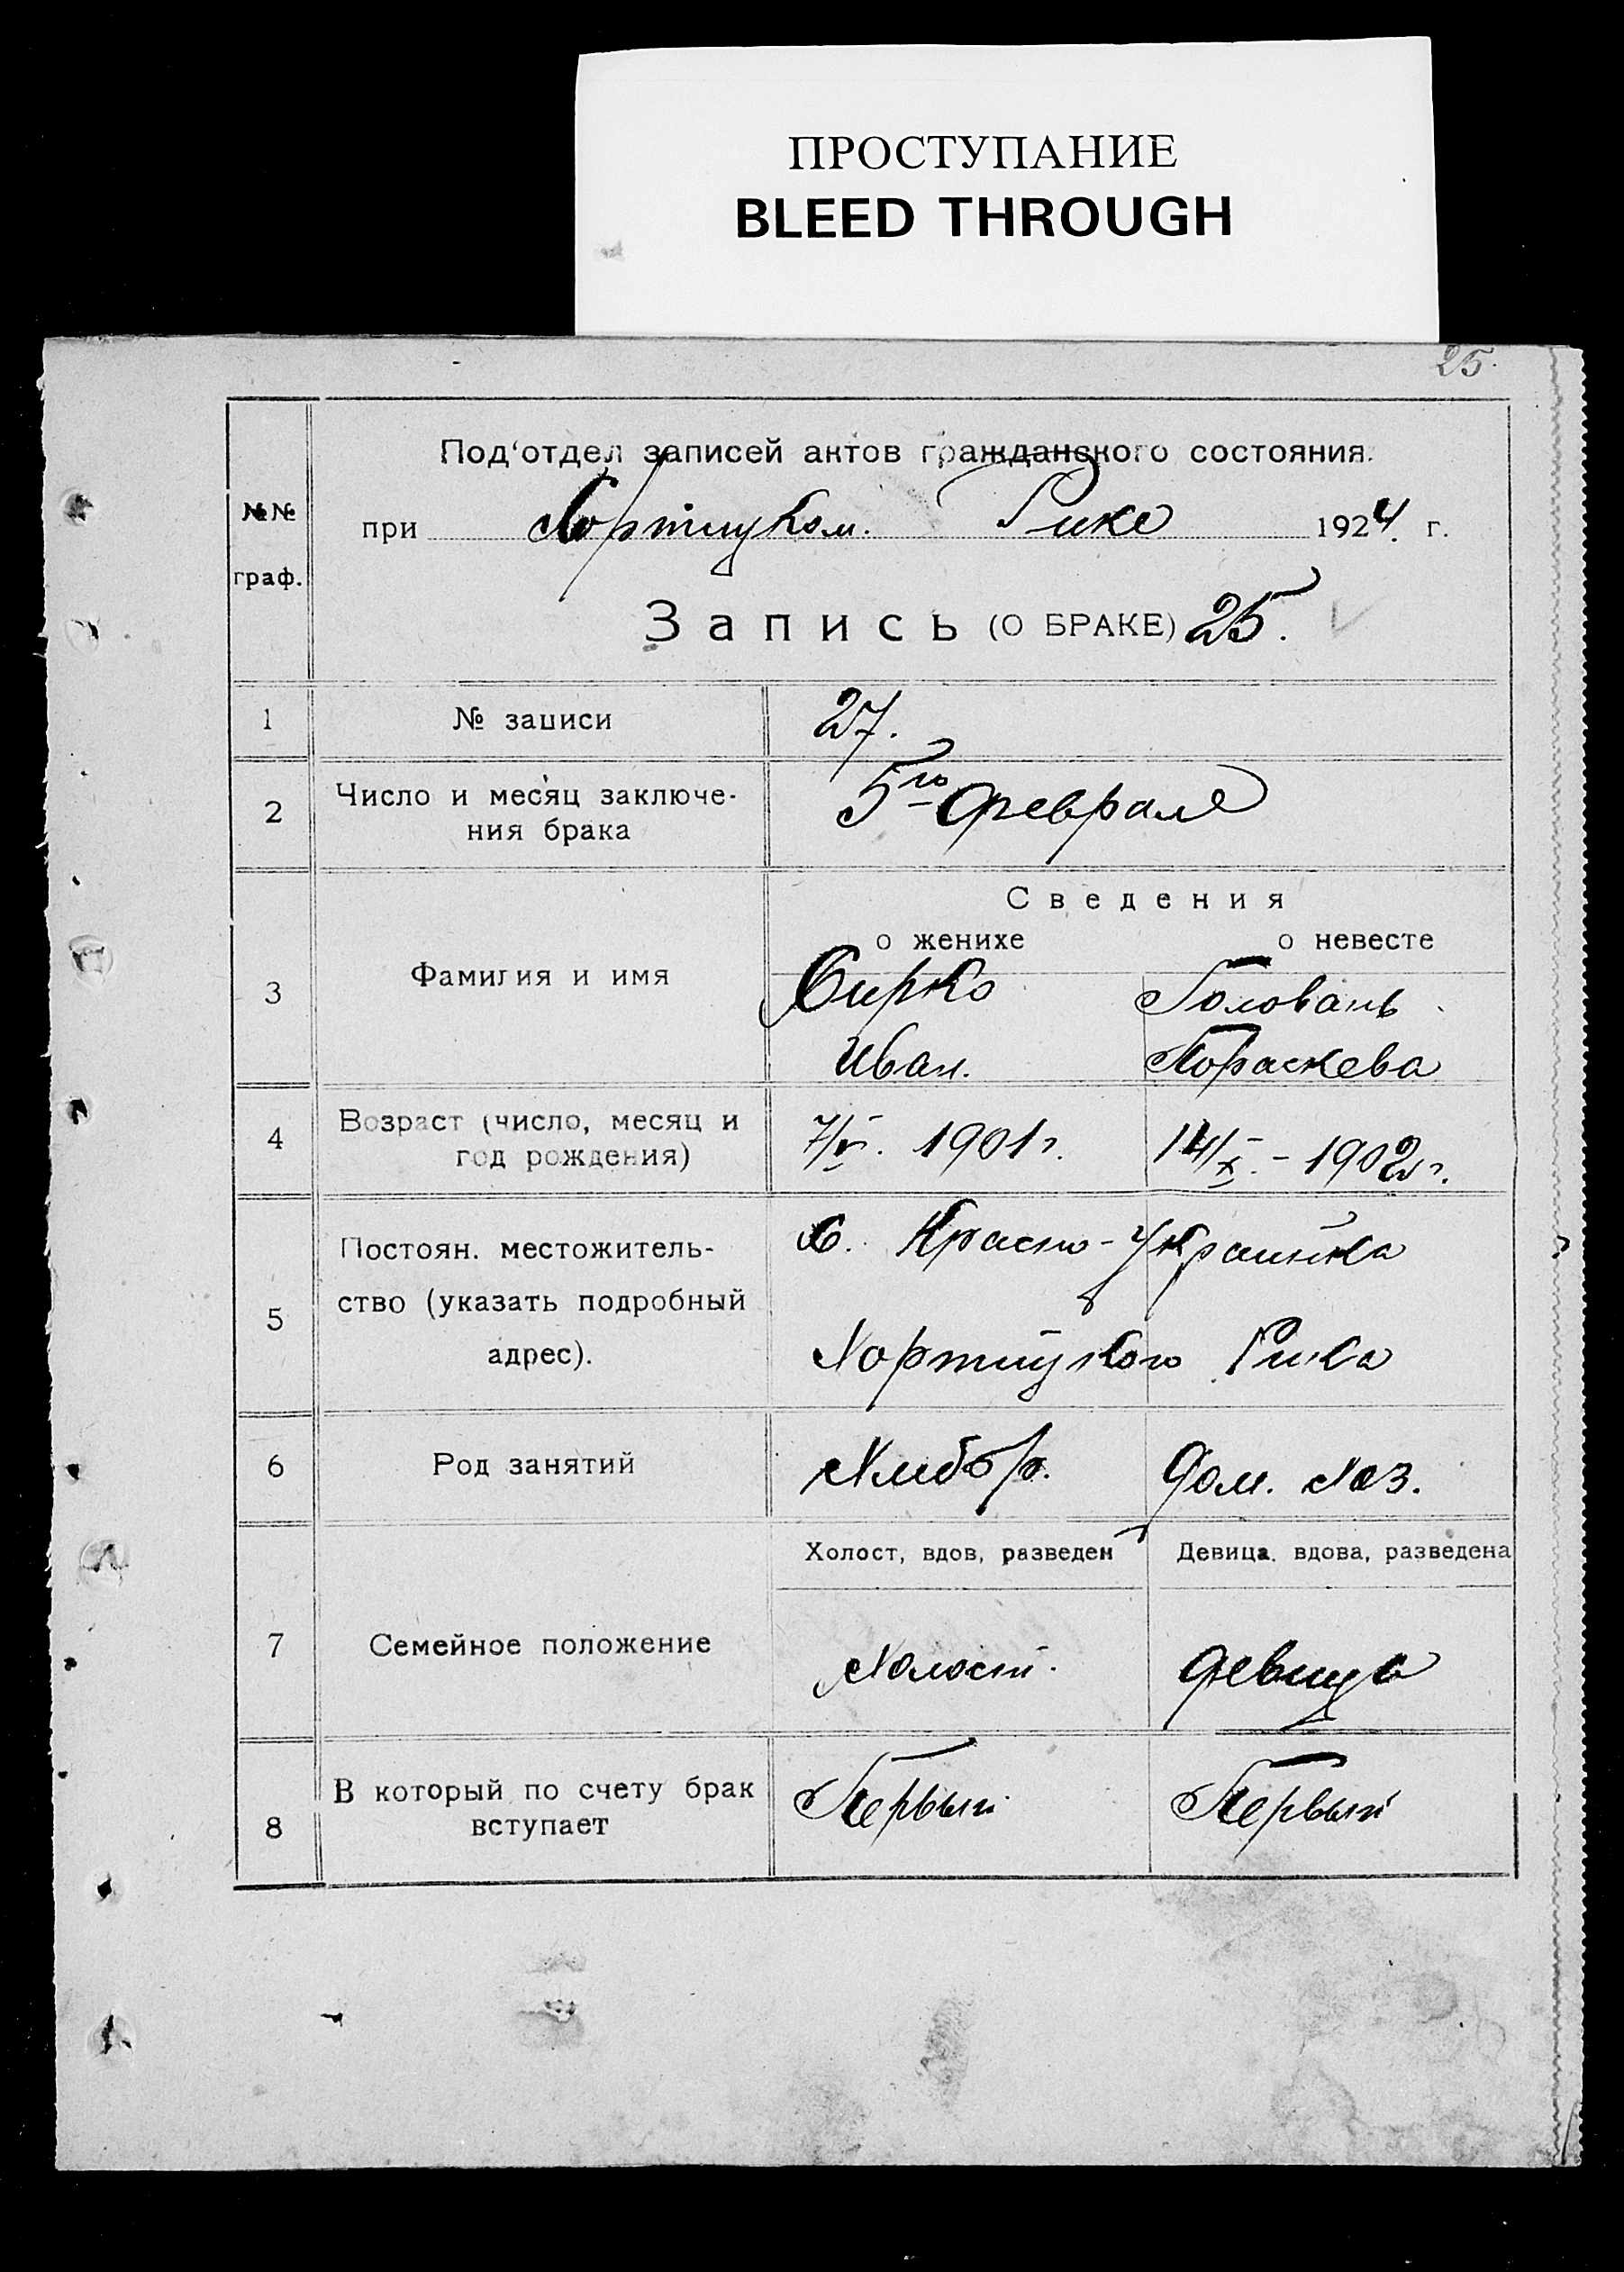 ПРОСТУПАНИЕ
BLEED THROUGH
25.
Под‘отдел записей актов гражданского состояния.
№№ граф.
при Хортицком. Рике 1924 г.
Запись (О БРАКЕ) 25.
1 № записи 27.
2 Число и месяц заключе-
ния брака
5го февраля
Сведения
о женихе о невесте
3 Фамилия и имя
Сирко Головань
Иван. Пораскева
4 Возраст (число, месяц и
год рождения)
7/V. 1901 г. 14/X. - 1902 г.
5 Постоян. местожитель-
ство (указать подробный
адрес).
С. Красно-Украинка
Хортицкого Рика
6 Род занятий Хлибор. Дом. Хоз.
Холост, вдов, разведен Девица. вдова, разведена
7 Семейное положение Холост. девица
8 В который по счету брак
вступает
Первый Первый